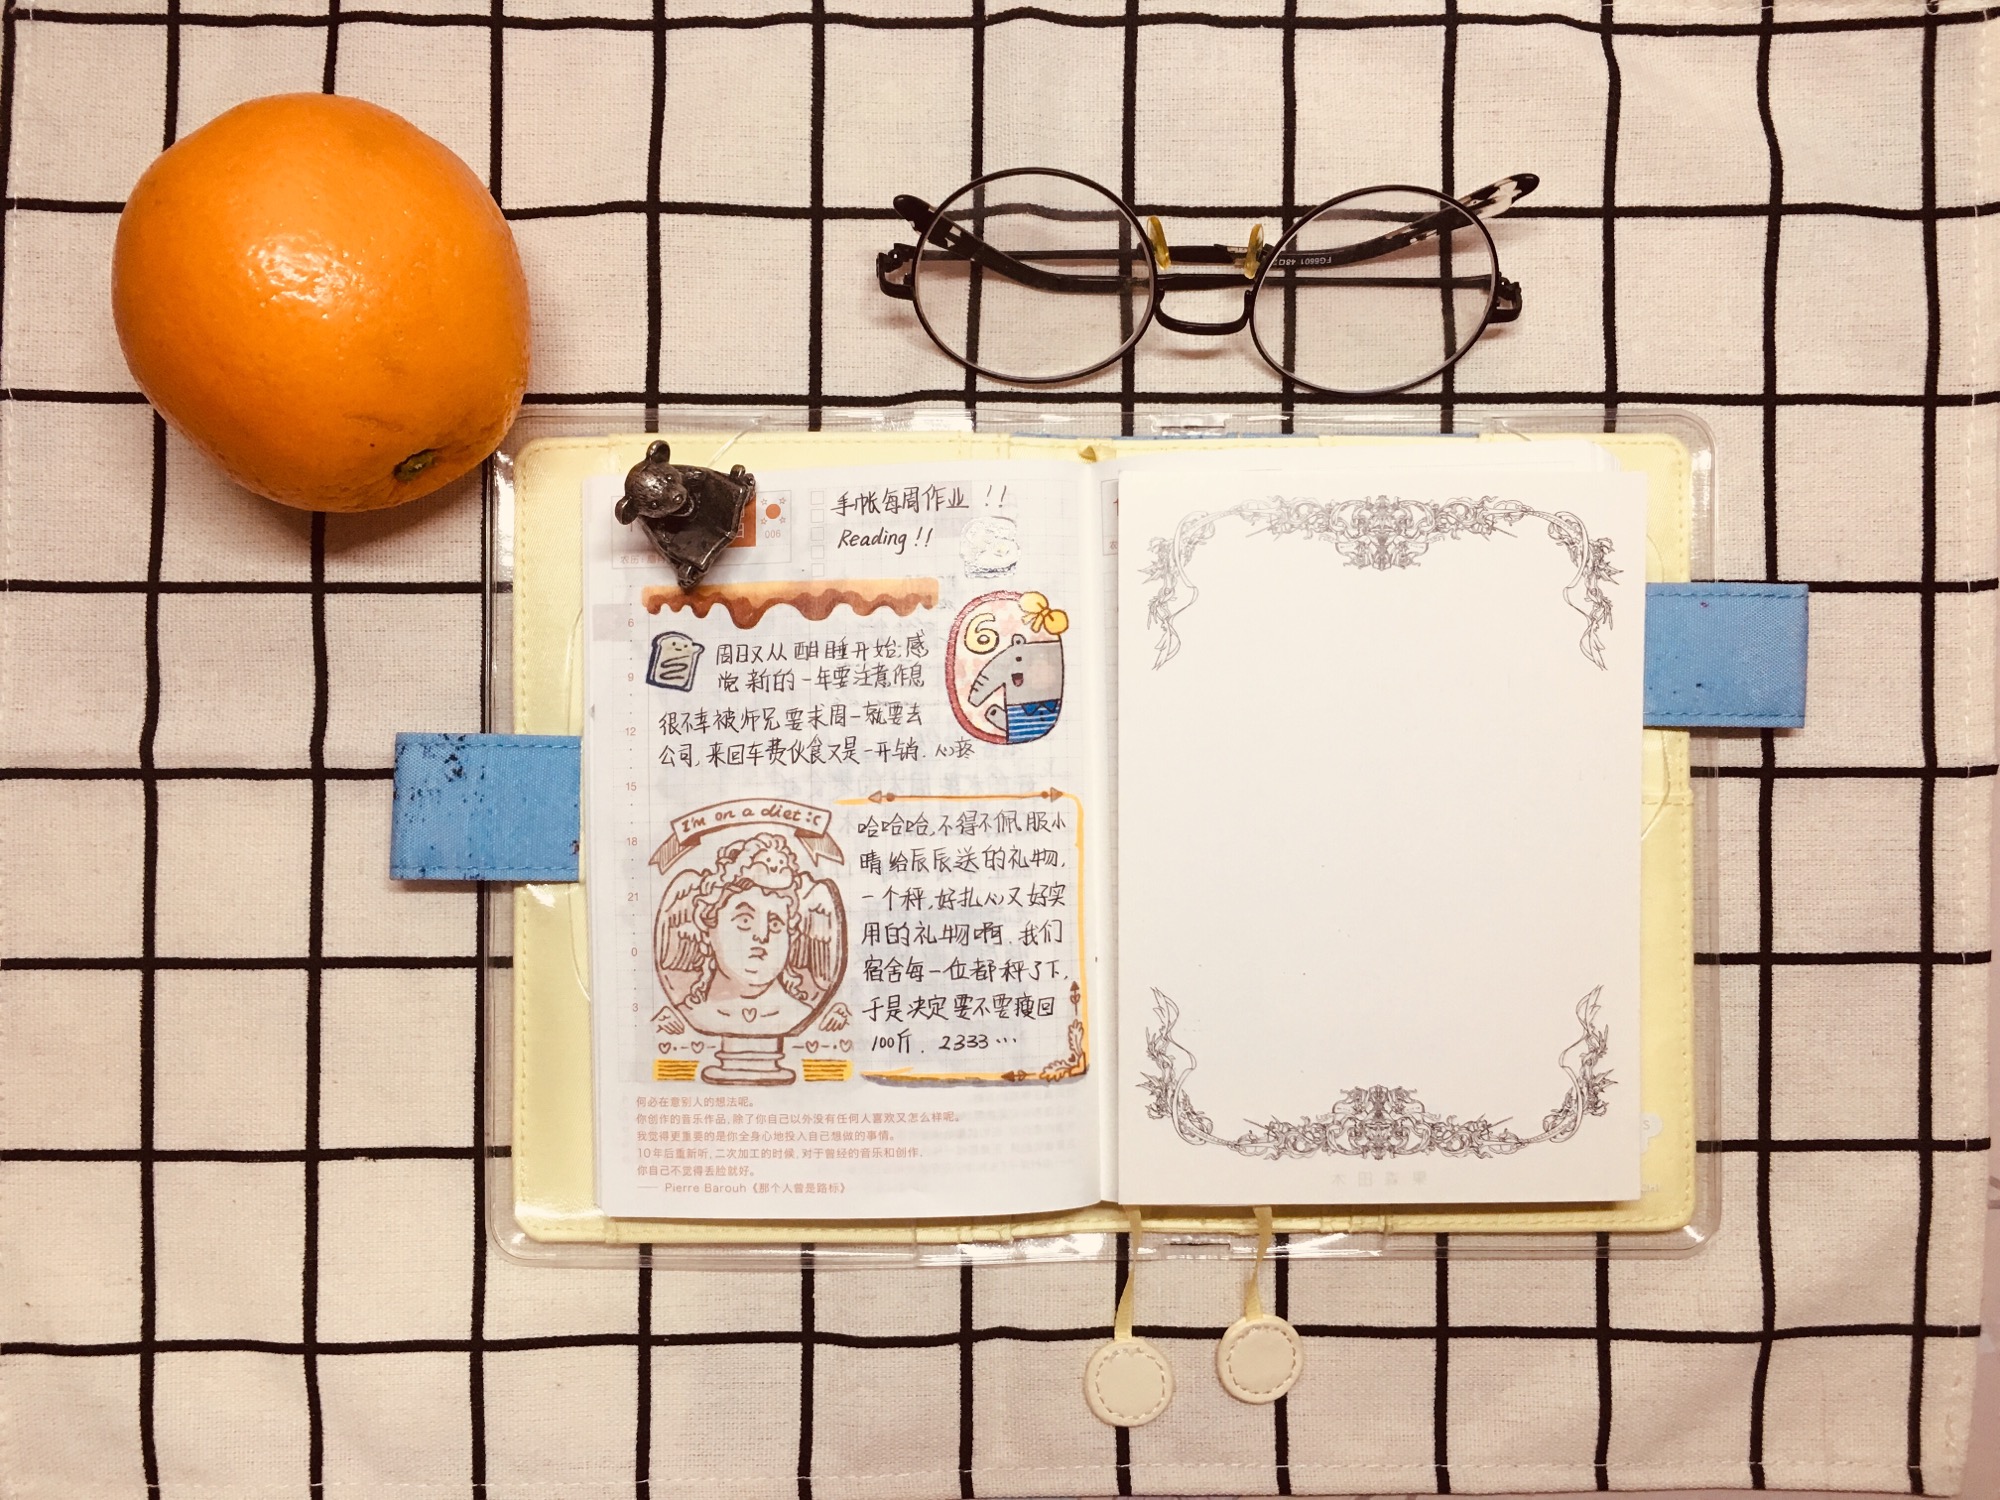 FG6601 48
006
手帐每周作业 !!
Reading !!
6
周日又从酣睡开始,感
觉新的一年要注意作息
很不幸被师兄要求周一就要去
公司,来回车费伙食又是一开销.心疼
6
9
12
15
18
21
0
3
I'm on a diet :(
哈哈哈,不得不佩服小
晴给辰辰送的礼物,
一个秤,好扎心又好实
用的礼物啊.我们
宿舍每一位都秤了下,
于是决定要不要瘦回
100斤. 2333…
何必在意别人的想法呢。
你创作的音乐作品,除了你自己以外没有任何人喜欢又怎么样呢。
我觉得更重要的是你全身心地投入自己想做的事情。
10年后重新听,二次加工的时候,对于曾经的音乐和创作,
你自己不觉得丢脸就好。
—— Pierre Barouh《那个人曾是路标》